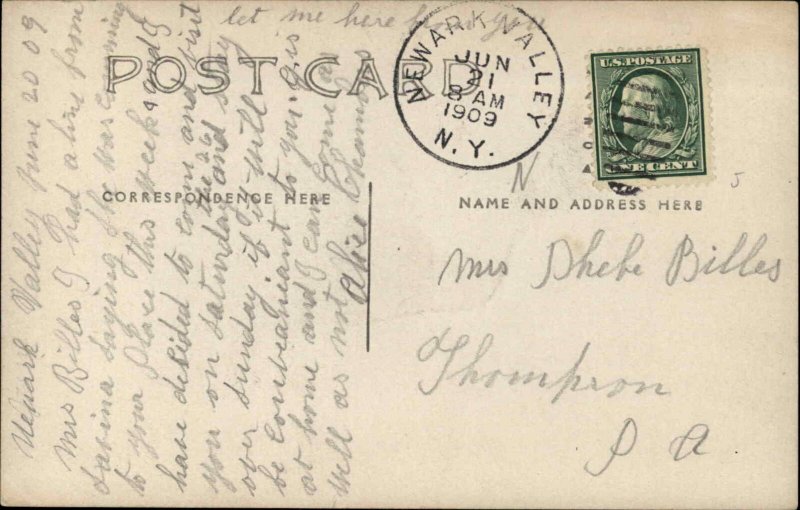 POST CARD
CORRESPONDENCE HERE
NAME AND ADDRESS HERE
NEWARK VALLEY
JUN
21
8 AM
1909
N. Y.
U.S. POSTAGE
ONE CENT
Newark Valley June 20 09
Mrs Billes I had a line from
Lavina saying she was coming
to your place this week and I
have desided to com and visit
you on saturday 26 and stay
over sunday if it will
be conveaniant to you
at home and I can come
well as not Alice
let me here from you
N
Mrs Phebe Billes
Thompson
P A